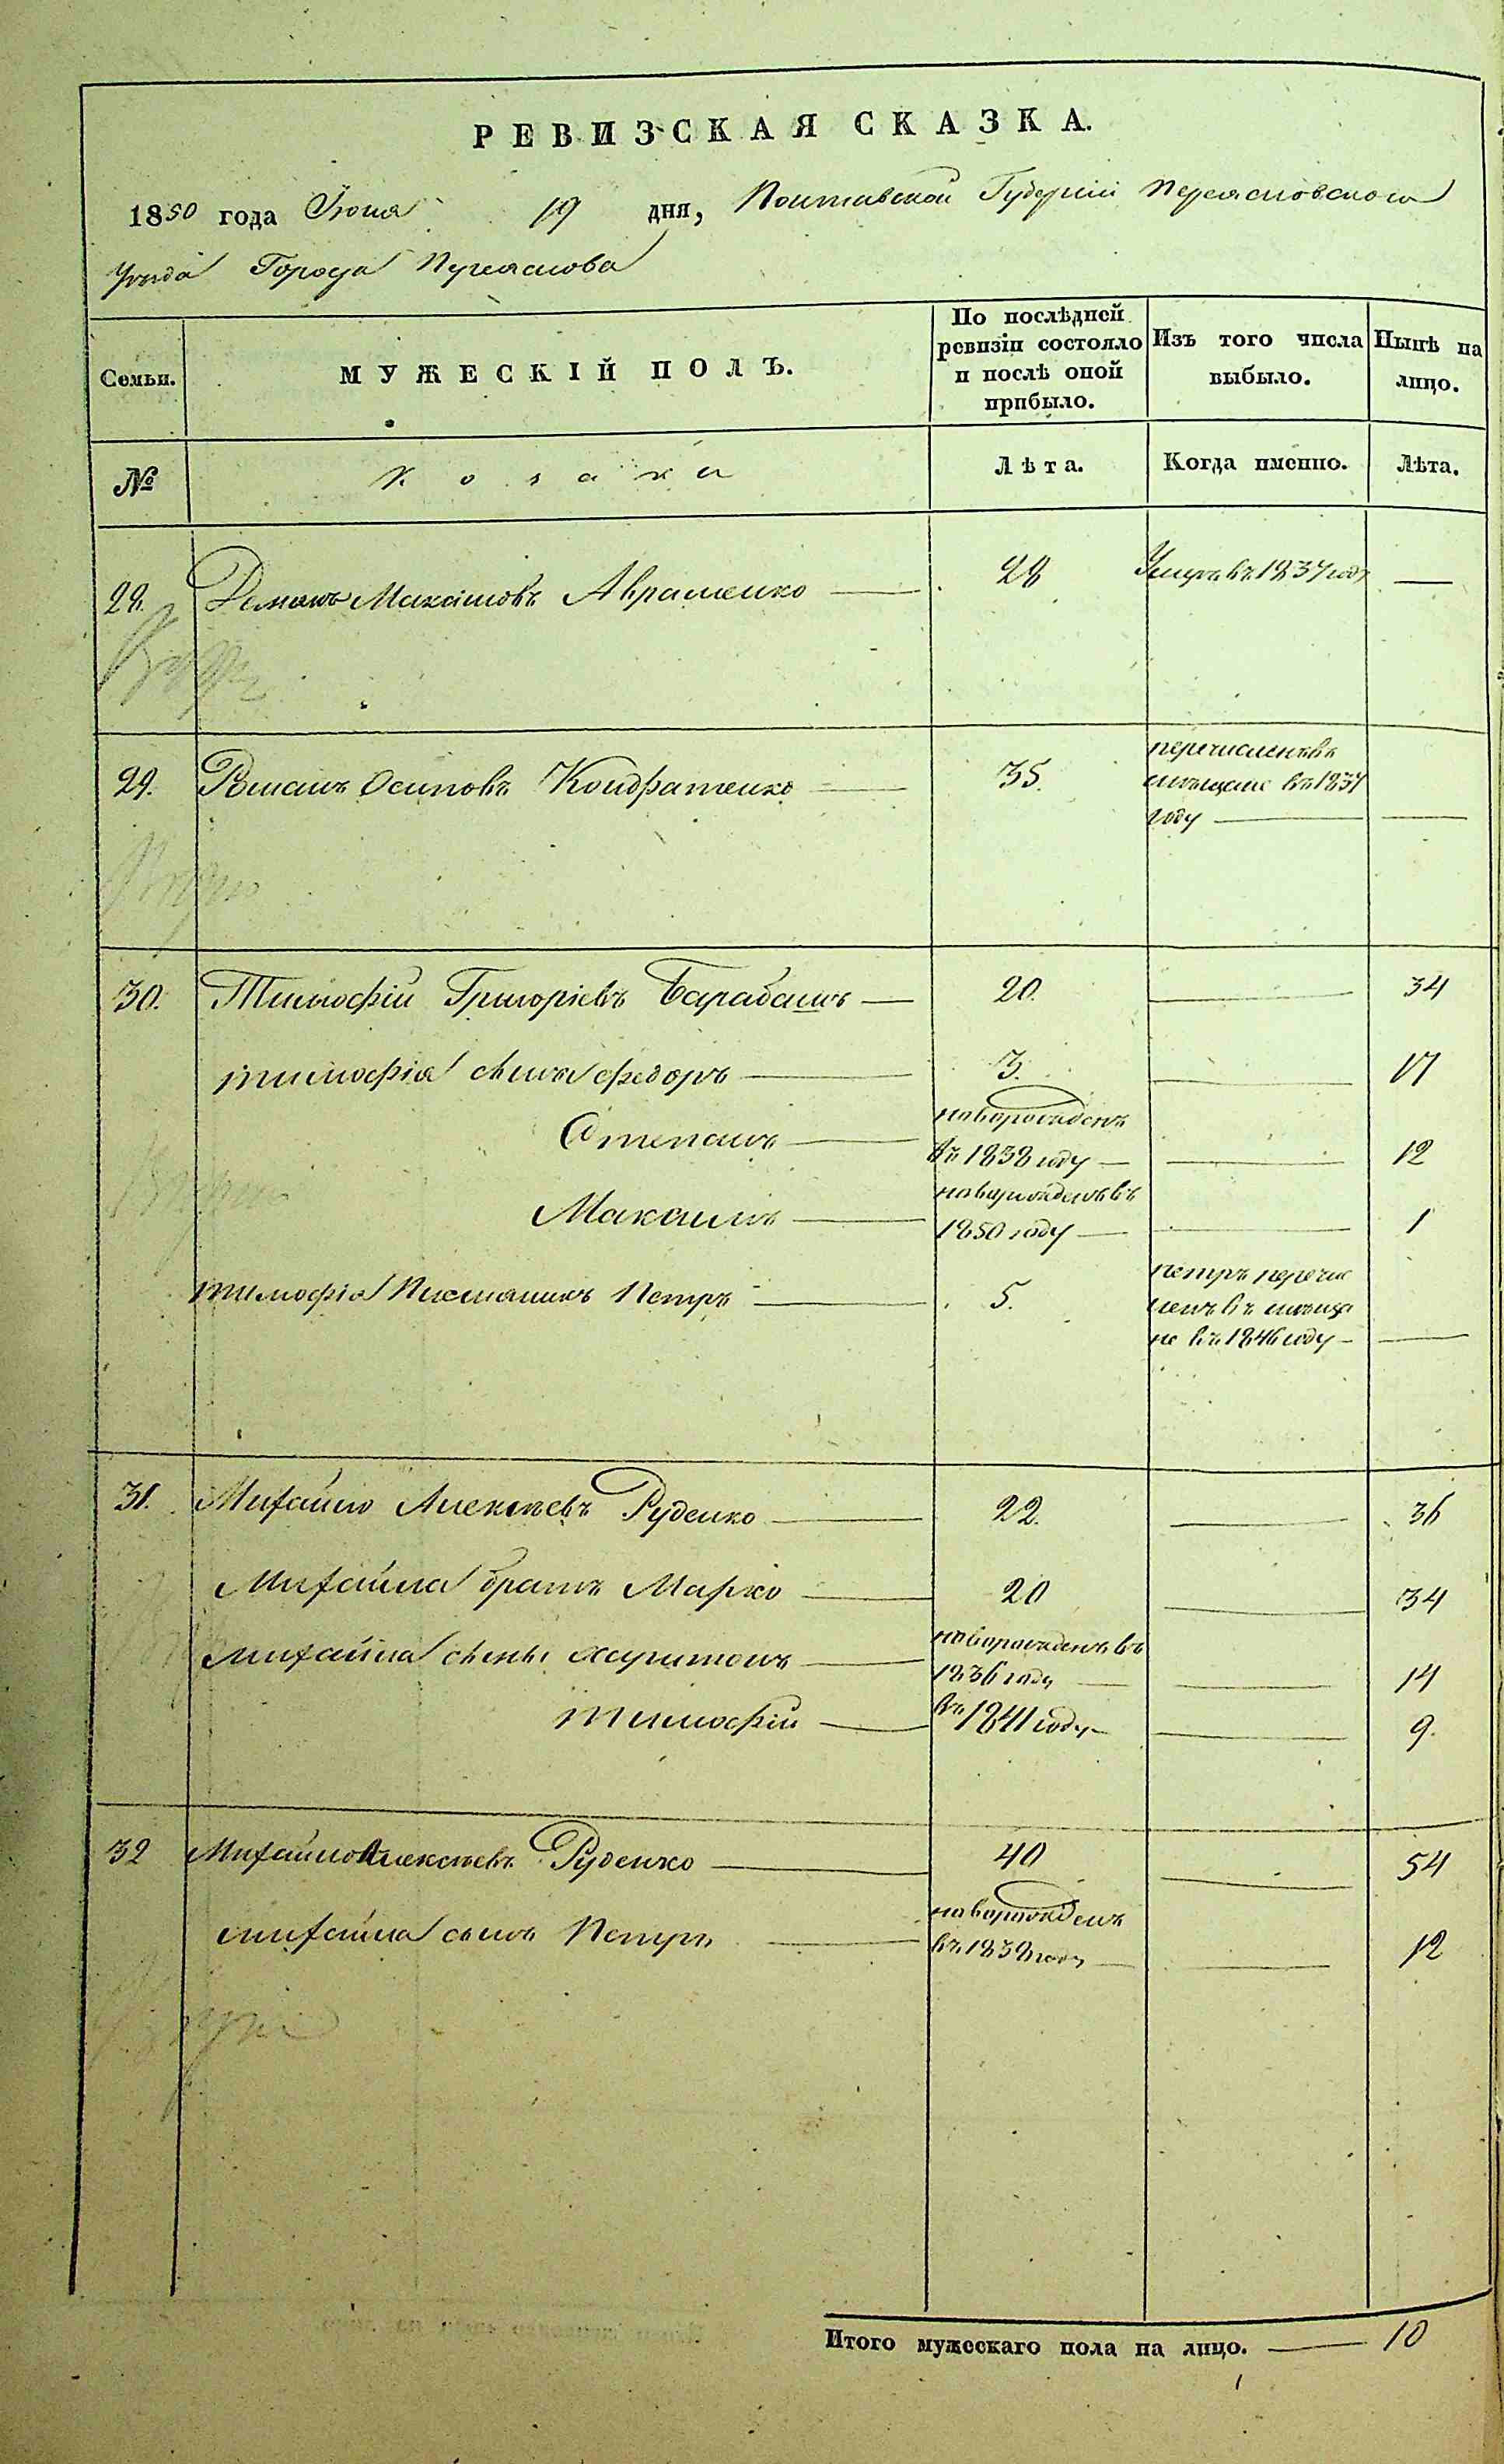 РЕВИЗСКАЯ СКАЗКА.
1850 года Іюня 19 дня, Полтавской Губерніи Переясловского
Уезда Города Переяслова
Семьи.
МУЖЕСКІЙ ПОЛЪ.
По послѣдней ревизіи состояло и послѣ оной прибыло.
Изъ того числа выбыло.
Нынѣ на лицо.
№
Козаки
Лѣта.
Когда именно.
Лѣта.
28. Романъ Максимовъ Авраменко — 28 Умеръ въ 1837 году —
29. Романъ Осиповъ Кондратенко — 35. перечисленъ въ мещане въ 1837 году — —
30. Тимофій Григоріевъ Барабашъ — 20. — 34
тимофія сынъ федоръ — 3. — 17
Степанъ — новорожденъ въ 1838 году — — 12
Максимъ — новорожденъ въ 1850 году — — 1
тимофія Племяникъ Петръ — 5. петръ перечисленъ въ мещане въ 1846 году — —
31. Михайло Алексѣевъ Руденко — 22. — 36
Михайла братъ Марко — 20 — 34
михайла сыны харитонъ — новорожденъ въ 1836 году — — 14
тимофій — въ 1841 году — — 9.
32 Михайло Алексѣевъ Руденко — 40 — 54
михайла сынъ Петръ — новорожденъ въ 1838 году — — 12
Итого мужескаго пола на лицо. — 10